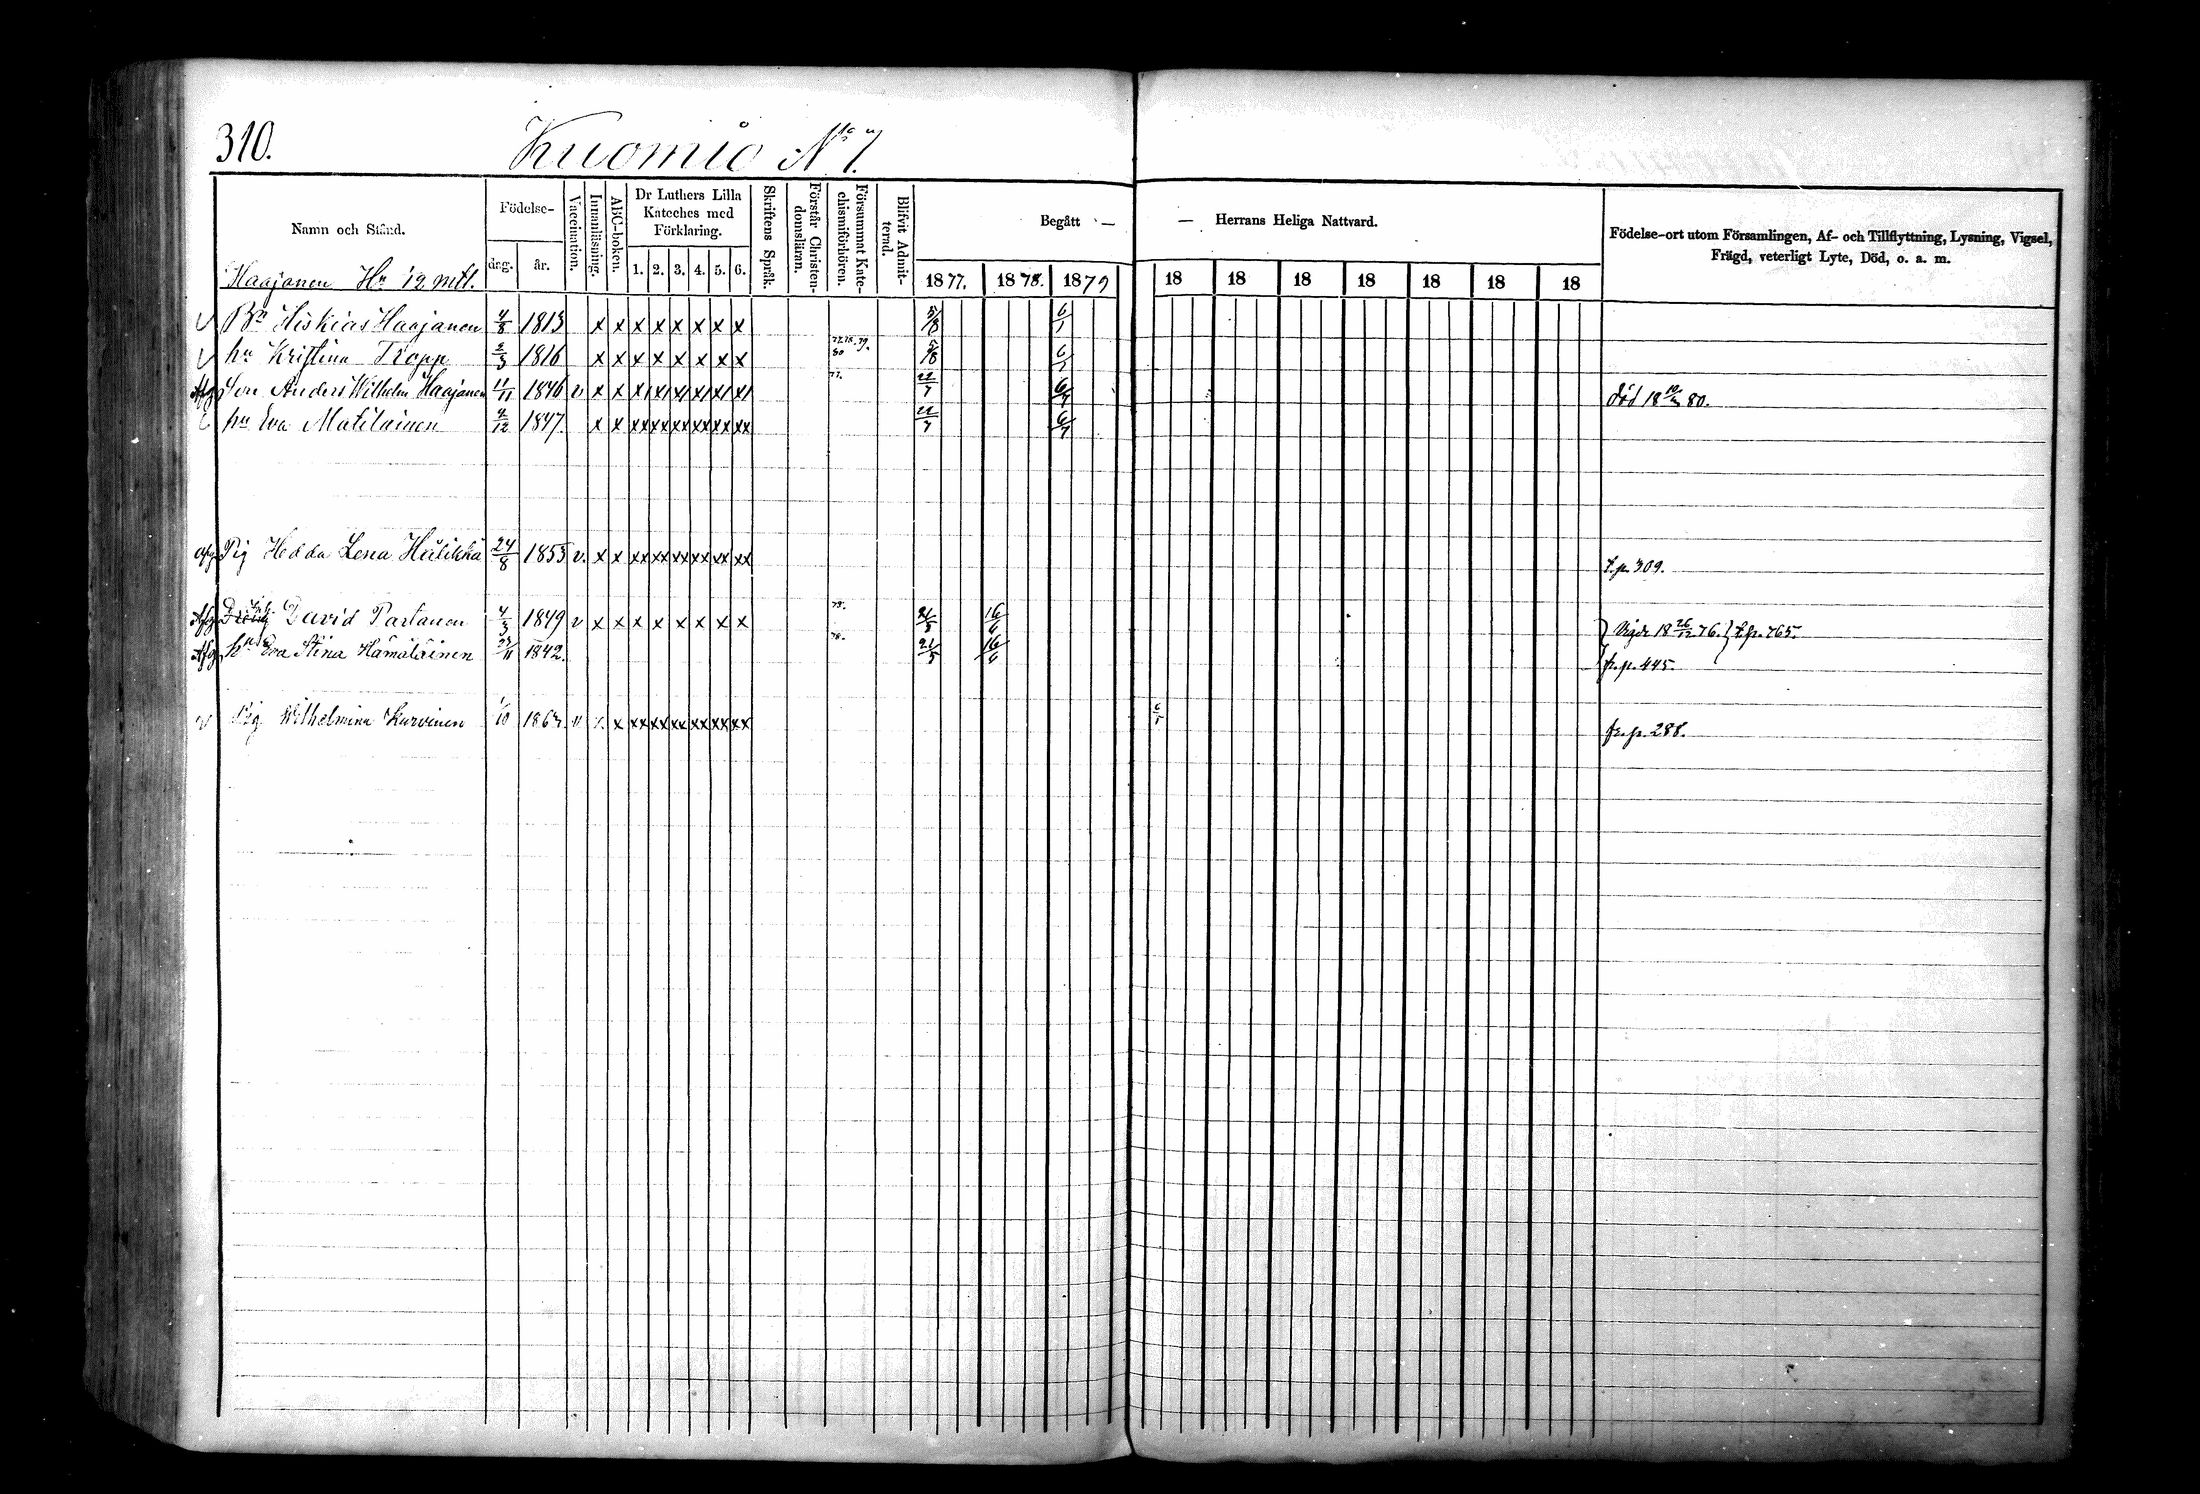 310. Kuomio № 7.
Namn och Stånd. Födelse- dag. år. Vaccination. Innanläsning. ABC-boken. Dr Luthers Lilla Kateches med Förklaring. 1. 2. 3. 4. 5. 6. Skriftens Språk. Förstår Christendomsläran. Försummat Katechismiförhören. Blifvit Admitterad. Begått — — Herrans Heliga Nattvard. 1877. 1878. 1879 18 18 18 18 18 18 18 Födelse-ort utom Församlingen, Af- och Tillflyttning, Lysning, Vigsel, Frägd, veterligt Lyte, Död, o. a. m.
Haajanen Hn 12 mtl.
v Bn Hiskias Haajanen 4/8 1813 x x x x x x x x 5/8 6/7
v hu Kristina Tropp 2/3 1816 x x x x x x x x 77. 78. 79. 80 5/8 6/7
Afg Son Anders Wilhelm Haajanen 11/11 1846 v x x x x x x x x 77. 22/7 6/7 död 18 80.
hu Eva Matilainen 4/12 1847. x x xx xx xx xx xx xx 22/7 6/7
afg Pig Hedda Lena Hülikkä 24/8 1855 v. x x xx xx xx xx xx xx t.p. 309.
Afg Dräng David Partanen 4/3 1849 v x x x x x x x x 78. 21/5 16/6 Vigde 18 26/12 76. } t.p. 765.
Afg hu Eva Stina Hämäläinen 1842. 78. 21/5 16/6 fr. p. 445.
v Pig Wilhelmina Kurvinen 1/10 1863. v x x xx xx xx xx xx xx 6/7 fr. p. 288.